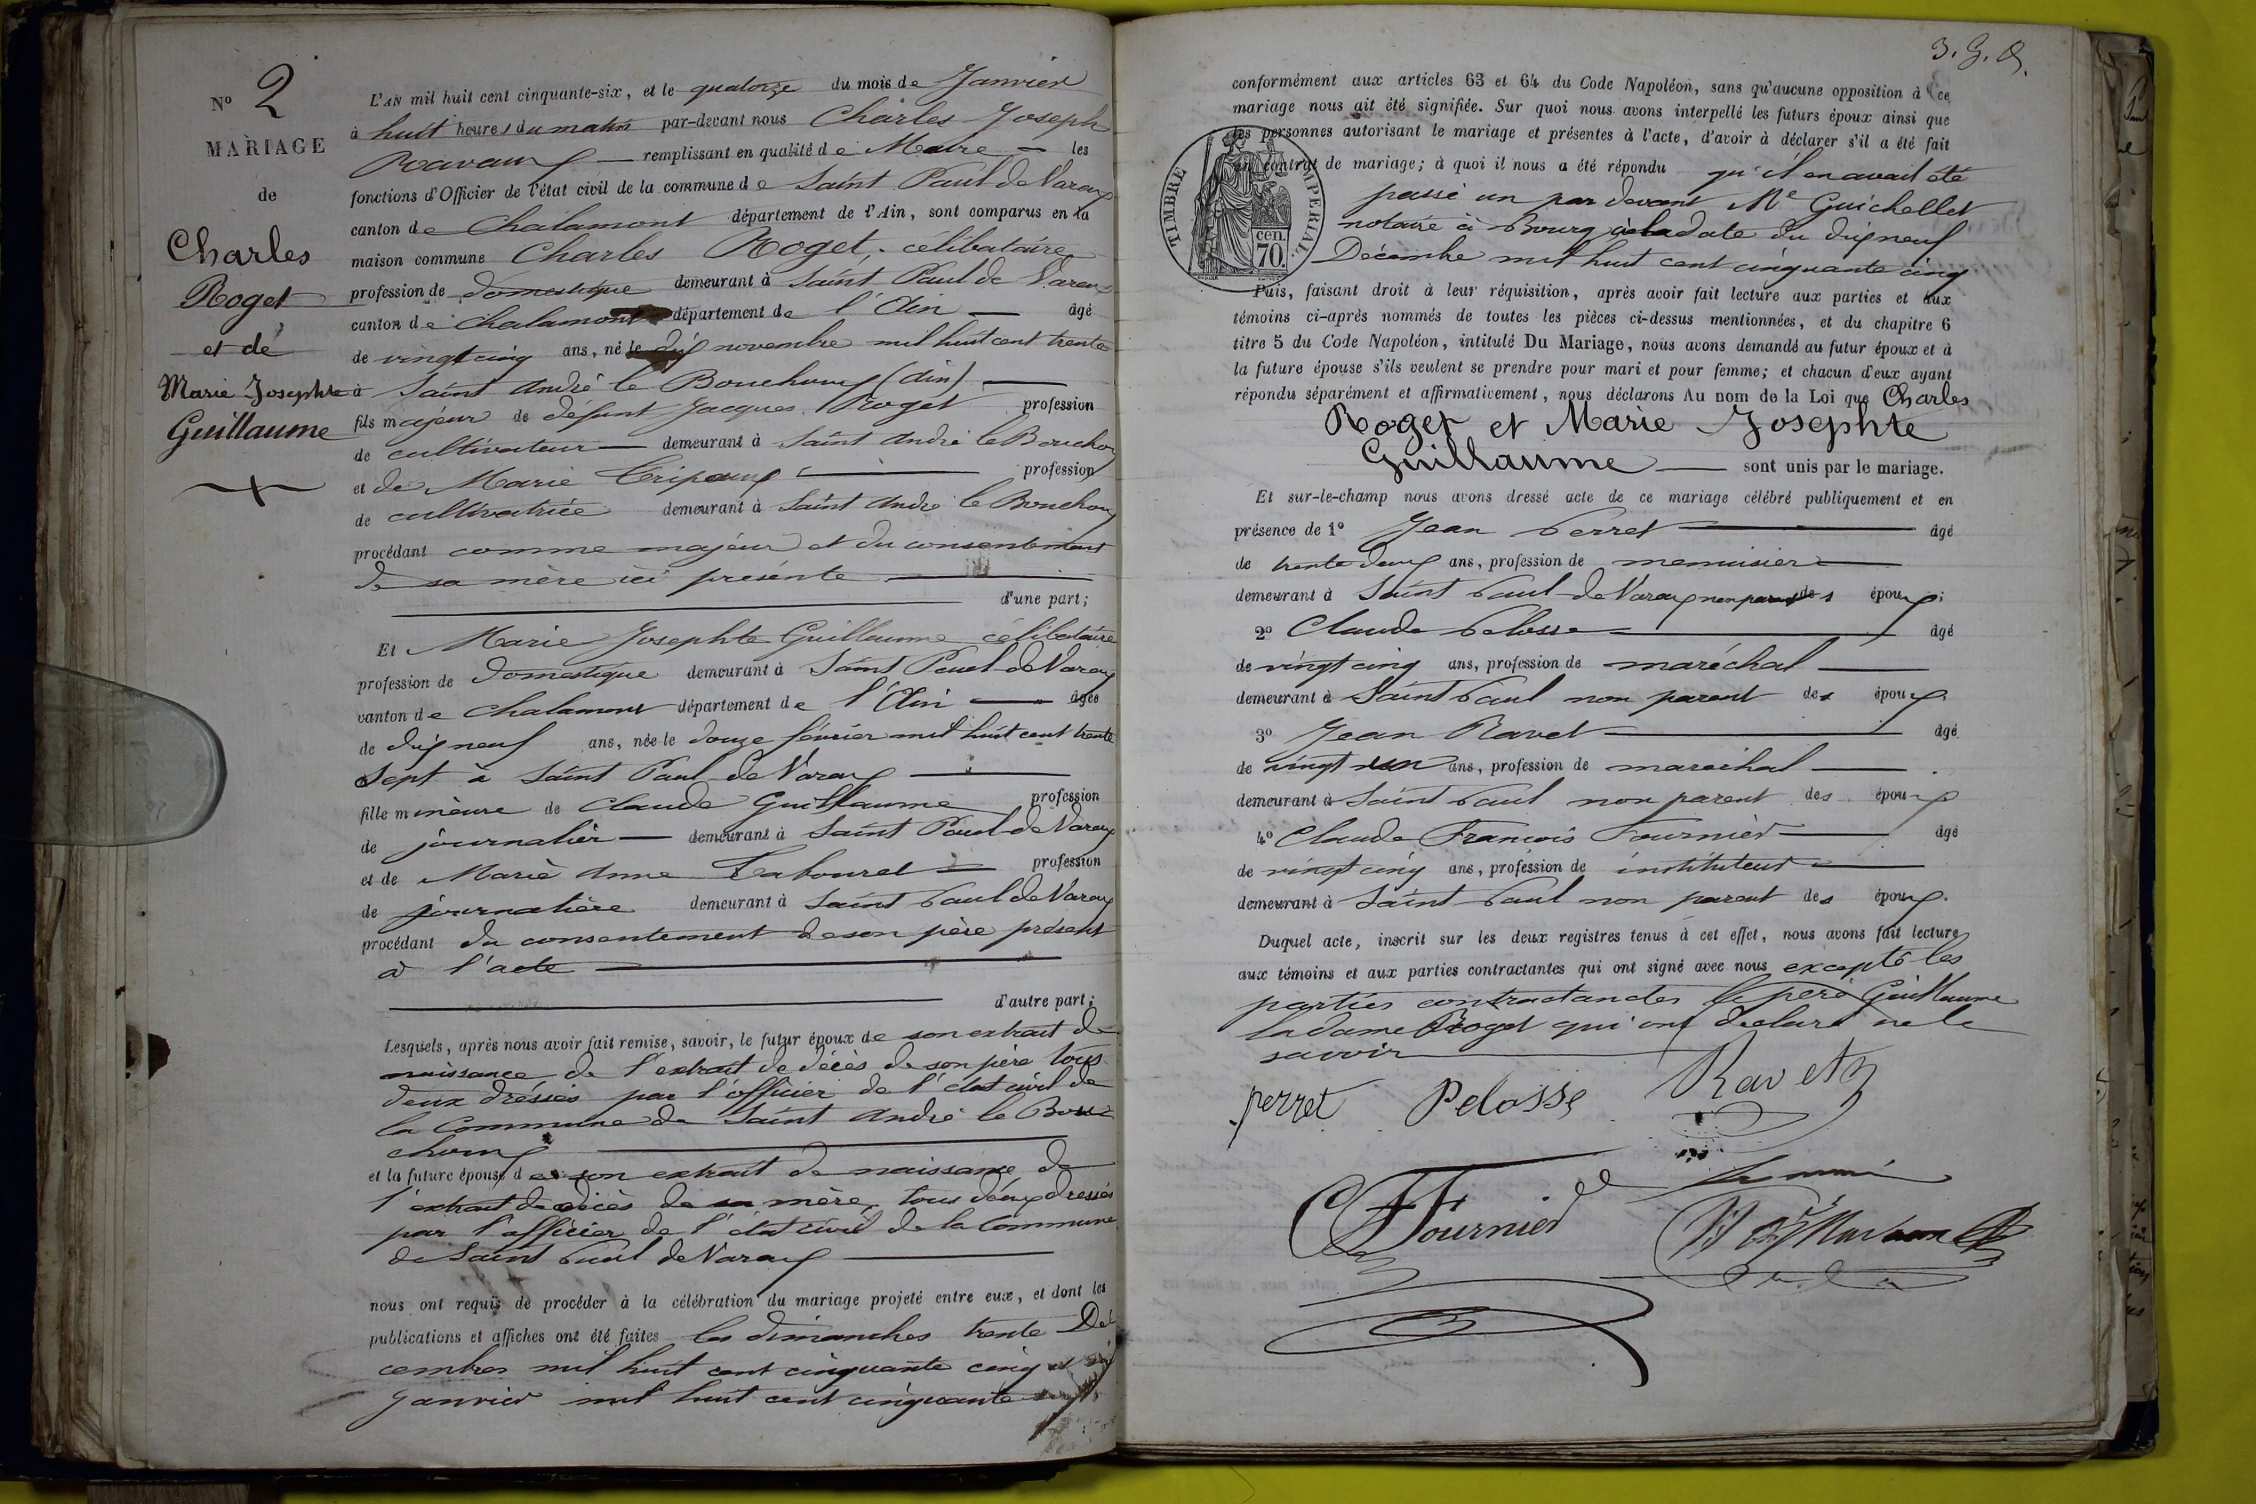 N° 2
MARIAGE
de
Charles
Roget
et de
Marie Josephte
Guillaume
L'AN mil huit cent cinquante-six, et le quatorze du mois de Janvier
à huit heures du matin par-devant nous Charles Joseph
remplissant en qualité de Maire les
fonctions d'Officier de l'état civil de la commune de Saint Paul de Varax
canton de Chalamont département de l'Ain, sont comparus en la
maison commune Charles Roget, célibataire
profession de domestique demeurant à Saint Paul de Varax
canton de Chalamont département de l'Ain âgé
de vingt cinq ans, né le dix novembre mil huit cent trente
à Saint André le Bouchoux (Ain)
fils majeur de défunt Jacques Roget profession
de cultivateur demeurant à Saint André le Bouchoux
et de Marie profession
de cultivatrice demeurant à Saint André le Bouchoux
procédant comme majeur et du consentement
de sa mère ici présente
d'une part;
Et Marie Josephte Guillaume célibataire
profession de domestique demeurant à Saint Paul de Varax
canton de Chalamont département de l'Ain âgée
de dix neuf ans, née le douze février mil huit cent trente
sept à Saint Paul de Varax
fille mineure de Claude Guillaume profession
de journalier demeurant à Saint Paul de Varax
et de Marie Anne Labouret profession
de journalière demeurant à Saint Paul de Varax
procédant du consentement de son père présent
à l'acte
d'autre part;
Lesquels, après nous avoir fait remise, savoir, le futur époux de son extrait de
naissance de l'extrait de décès de son père tous
deux dréssés par l'officier de l'état civil de
la Commune de Saint André le Bou-
choux
et la future épouse de son extrait de naissance de
l'extrait de décès de sa mère, tous deux dressés
par l'officier de l'état civil de la Commune
de Saint Paul de Varax
nous ont requis de procéder à la célébration du mariage projeté entre eux, et dont les
publications et affiches ont été faites les dimanches trente Dé-
cembre mil huit cent cinquante cinq et six
Janvier mil huit cent cinquante six
3. G. D.
conformément aux articles 63 et 64 du Code Napoléon, sans qu'aucune opposition à ce
mariage nous ait été signifiée. Sur quoi nous avons interpellé les futurs époux ainsi que
les personnes autorisant le mariage et présentes à l'acte, d'avoir à déclarer s'il a été fait
un contrat de mariage; à quoi il nous a été répondu qu'il en avait été
passé un par devant Me Guichellet
notaire à Bourg à la date du dix neuf
Décembre mil huit cent cinquante cinq
TIMBRE IMPERIAL
cen.
70.
Puis, faisant droit à leur réquisition, après avoir fait lecture aux parties et aux
témoins ci-après nommés de toutes les pièces ci-dessus mentionnées, et du chapitre 6
titre 5 du Code Napoléon, intitulé Du Mariage, nous avons demandé au futur époux et à
la future épouse s'ils veulent se prendre pour mari et pour femme; et chacun d'eux ayant
répondu séparément et affirmativement, nous déclarons Au nom de la Loi que Charles
Roget et Marie Josephte
Guillaume sont unis par le mariage.
Et sur-le-champ nous avons dressé acte de ce mariage célébré publiquement et en
présence de 1° Jean Perret âgé
de trente deux ans, profession de menuisier
demeurant à Saint Paul de Varax non parent des époux;
2° Claude Pelosse âgé
de vingt cinq ans, profession de maréchal
demeurant à Saint Paul non parent des époux
3° Jean Ravet âgé
de vingt ans, profession de maréchal
demeurant à Saint Paul non parent des époux
4° Claude François Fournier âgé
de vingt cinq ans, profession de instituteur
demeurant à Saint Paul non parent des époux.
Duquel acte, inscrit sur les deux registres tenus à cet effet, nous avons fait lecture
aux témoins et aux parties contractantes qui ont signé avec nous excepté les
parties contractantes le père Guillaume
la dame Roget qui ont déclaré ne le
savoir
perret Pelosse Ravet
CF Fournier